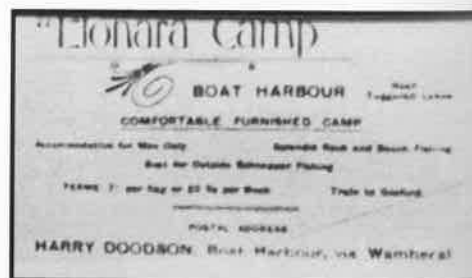 "Elonara Camp
BOAT HARBOUR
Near
Tuggerah Lakes
COMFORTABLE FURNISHED CAMP
Accommodation for Men Only Splendid Rock and Beach Fishing
Boat for Outside Schnapper Fishing
TERMS 7/- per Day or £2 per Week Train to Gosford
POSTAL ADDRESS
HARRY DOODSON, Boat Harbour, via Wamberal